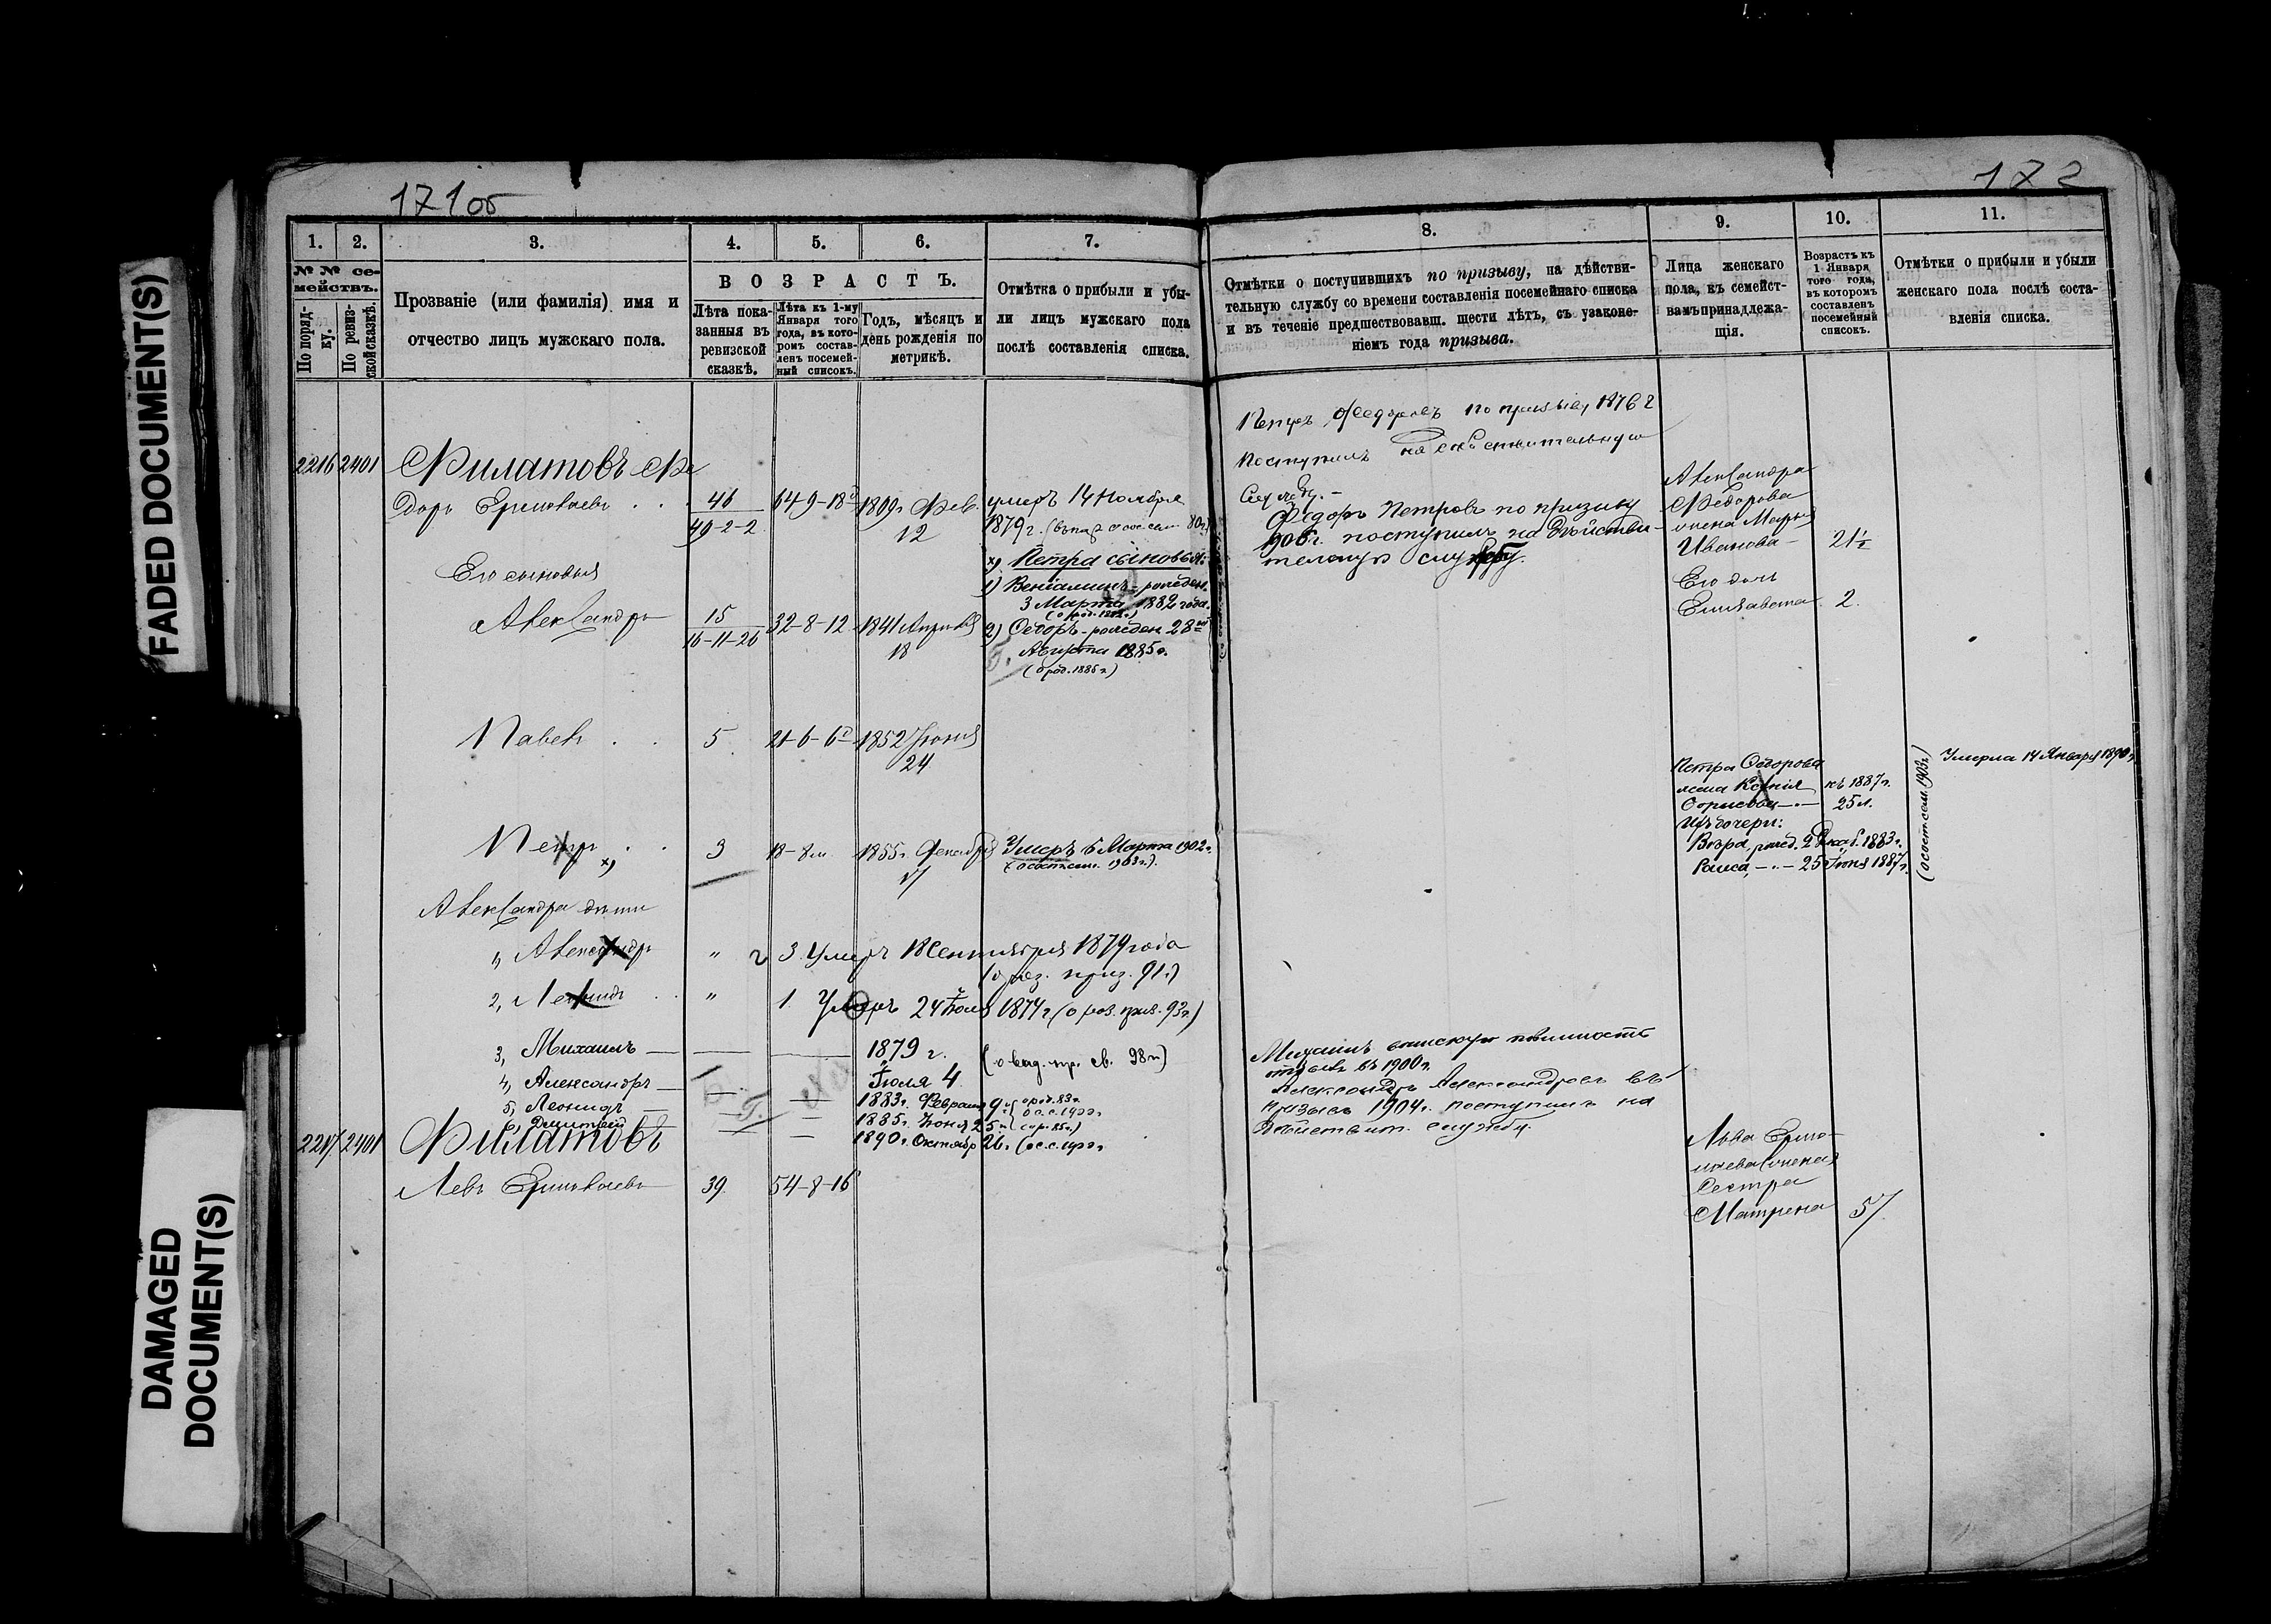 171об
172
FADED DOCUMENT(S)
DAMAGED
DOCUMENT(S)
1. 2. 3. 4. 5. 6. 7.
№ № се-
мействъ.
По поряд-
ку.
По ревиз-
ской сказкѣ.
Прозваніе (или фамилія) имя и
отчество лицъ мужскаго пола.
ВОЗРАСТЪ.
Лѣта пока-
занныя въ
ревизской
сказкѣ.
Лѣта къ 1-му
Января того
года, въ кото-
ромъ состав-
ленъ посемей-
ный списокъ.
Годъ, мѣсяцъ и
день рожденія по
метрикѣ.
Отмѣтка о прибыли и убы-
ли лицъ мужскаго пола
послѣ составленія списка.
2216 2401 Филатовъ Фе
доръ Ермолаевъ 46 64-9-18 1809г. Фев. умеръ 14 Ноября
49-2-2 12 1879г.
Его сыновья
х) Петра сыновья:
1) Веніаминъ - рожден.
3 Марта 1882 года.
Александръ 15 32-8-12 1841 Апрѣля 2) Ѳедоръ - рожден 28
16-11-26 18 Августа 1885г.
(о род. 1885г.)
Павелъ 5 21-6-6 1852 Іюня
24
Петръ х) 3 18-8м 1855г. Умеръ 6 Марта 1902г.
17
Александра дѣти
1, Александръ " 3 Умеръ 18 Сентября 1879 года
2, Леонидъ " 1. Умеръ 24 Іюля 1874г
3, Михаилъ — 1879 г.
Іюля 4
4, Александръ — 1883г. Февраля 9
5, Леонидъ — 1885г. Іюня 25
6, Дмитрій — 1890г. Октябр 26.
2217 2401 Филатовъ
Левъ Ермолаевъ 39 54-8-16
8. 9. 10. 11.
Отмѣтки о поступившихъ по призыву, на дѣйстви-
тельную службу со времени составленія посемейнаго списка
и въ теченіе предшествовавш. шести лѣтъ, съ узаконе-
ніемъ года призыва.
Лица женскаго
пола, къ семейст-
вамъ принадлежа-
щія.
Возрастъ къ
1 Января
того года,
въ которомъ
составленъ
посемейный
списокъ.
Отмѣтки о прибыли и убыли
женскаго пола послѣ соста-
вленія списка.
Петръ Федоровъ по призыву 1876 г
поступилъ на дѣйствительную
службу.-
Федоръ Петровъ по призыву
1906г. поступилъ на дѣйстви-
тельную службу.
Александра
Федорова
жена Марья
Иванова - 21½
Его дочь
Елизавета 2.
Петра Ѳедорова
жена Ксенія къ 1887г.
Борисова — 25 л.
Ихъ дочери:
Вѣра, рожд. 2 Декаб. 1883г.
Раиса, — 25 Іюня 1887г.
Умерла 14 Января 1890г.
Михаилъ воинскую повинность
отбылъ въ 1900г.
Александръ Александровъ въ
призывъ 1904г. поступилъ на
дѣйствит. службу.
Льва Ермо-
лаева
Сестра
Матрена 57